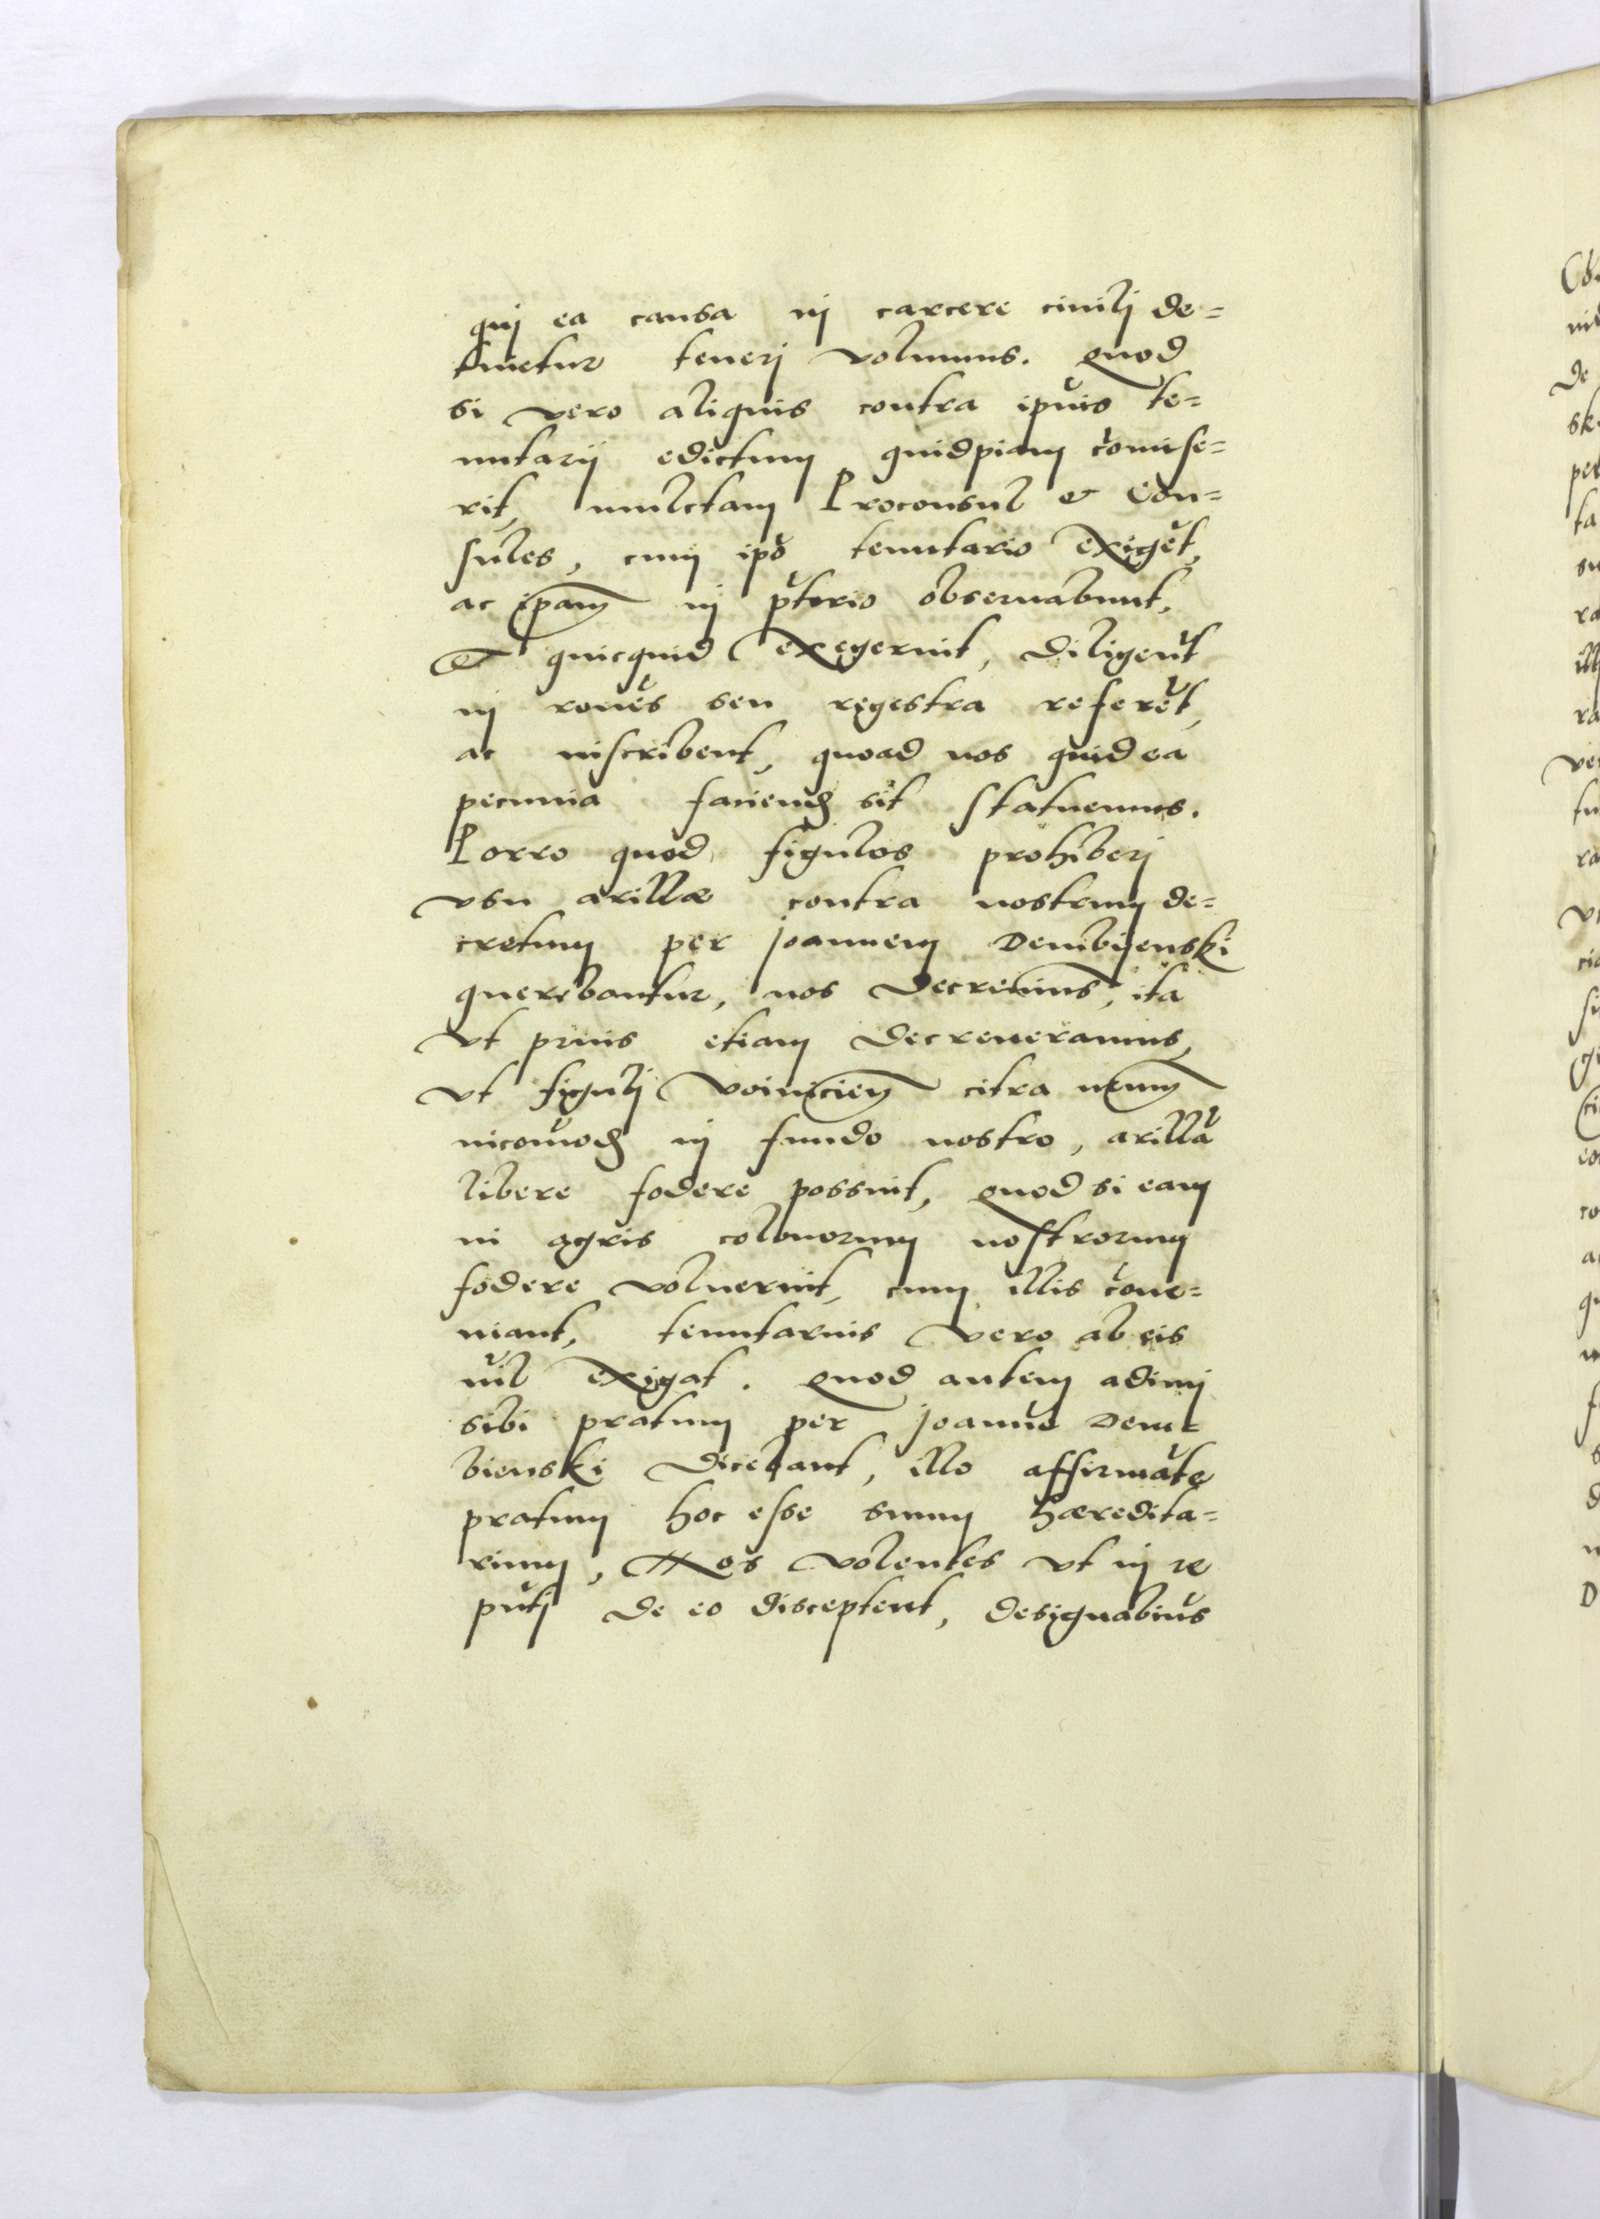 quj ea causa in carcere ciuilj de=
tinetur tenerj volumus. Quod
si vero aliquis contra ipīus te=
nutarij edictum quidpiam com̄ise=
rit, mulctam Proconsul & Con=
sules, cum ipō tenutario exigēt,
ac ipam in p̄torio obseruabunt,
Et quicquid exegerint, diligen̄t
in ron̄es seu regestra referēt,
ac inscribent, quoad nos quid ea
pecunia faciend sit statuemus.
Porro quod figulos prohiberj
vsu arillæ contra nostrum de=
cretum per joannem Dembijenski
querebantur, nos decreuimus, ita
vt prius etiam decreueramus,
vt figulj Voinicien citra
incom̄od in fundo nostro, arillā
libere fodere possint, Quod si eam
in agris colonorum nostrorum
fodere voluerint, cum illis cōue=
niant, tenutarius vero ab eis
nīl exigat. Quod autem adimj
sibi pratum per joannē Dem=
bienski dicebant, illo affirmāte
pratum hoc esse suum hæredita=
rium, Nos volentes vt in re
pn̄tj de eo disceptent, designabim̄s